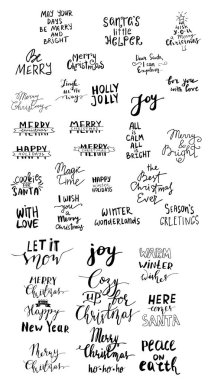 MAY YOUR
DAYS
BE MERRY
AND
BRIGHT
SANTA'S
little
HELPER
WISH
YOU
MERRY
Christmas
Be
MERRY
Merry
Christmas
Dear Santa,
I can
Explain
for you
with love
Merry
Christmas
Jingle
all the
Way
HOLLY
JOLLY
Joy
MERRY
CHRISTMAS
MERRY
CHRISTMAS
ALL
is
CALM
ALL
is
BRIGHT
Merry
&
Bright
HAPPY
HOLIDAYS
MERRY
CHRISTMAS
COOKIES
for
SANTA
Magic
time
HAPPY
WINTER
HOLIDAYS
the
Best
Christmas
Ever
WITH
LOVE
I WISH
you
a
Merry
Christmas
WINTER
WONDERLANDS
SEASON'S
GREETINGS
LET IT
snow
joy
WARM
WINTER
wishes
MERRY
Christmas
and
Happy
New YEAR
Cozy
UP for
Christmas
HERE
comes
SANTA
Merry
Christmas
Merry
Christmas
ho-ho-ho
PEACE
on
earth